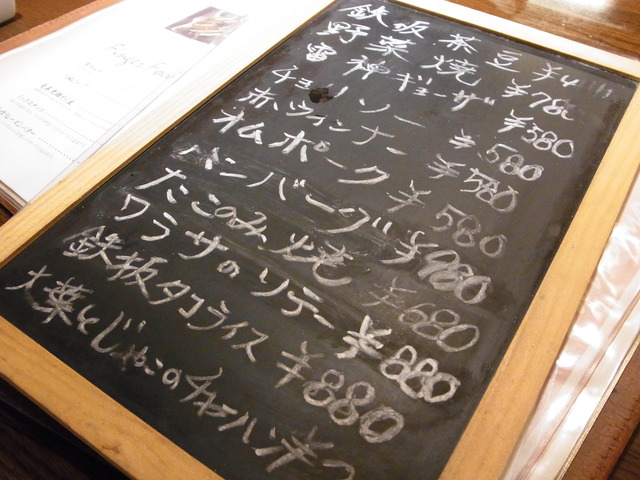 鉄板茶豆 ¥4
野菜焼 ¥780
雷神ギョーザ ¥380
チョリソー ¥580
赤ウィンナー ¥580
オムポーク ¥580
ハンバーグ ¥980
たこのみ焼 ¥680
ワラサのソテー ¥880
鉄板タコライス ¥880
大葉とじゃこのチャーハン ¥
Finger Food